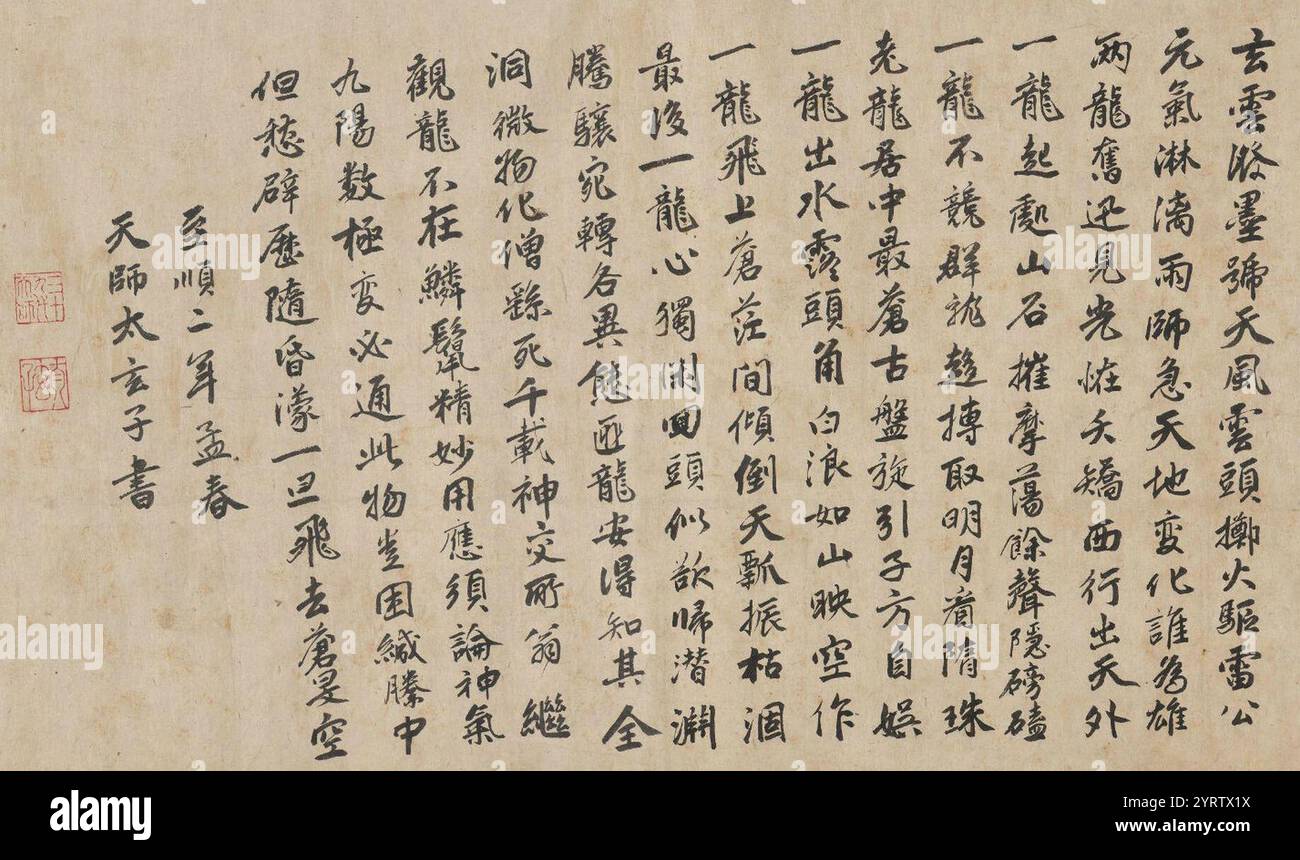 玄雲潑墨號天風雲頭擲火驅雷公
元氣淋漓雨師急天地變化誰為雄
兩龍奮迅見光恠夭矯西行出天外
一龍起處山石摧摩蕩餘聲隱磅磕
一龍不競群龍趍搏取明月着隋珠
老龍居中最蒼古盤旋引子方自娛
一龍出水露頭角白浪如山映空作
一龍飛上蒼茫間傾倒天瓢振枯涸
最後一龍心獨閑回頭似欲歸潛淵
騰驤宛轉各異態匪龍安得知其全
洞微物化僧繇死千載神交所翁繼
觀龍不在鱗鬣精妙用應須論神氣
九陽数極变必通此物豈困緘縢中
但愁辟歷隨昏濛一旦飛去蒼旻空
至順二年孟春
天師太玄子書
alamy
Image ID: 2YRTX1X
www.alamy.com